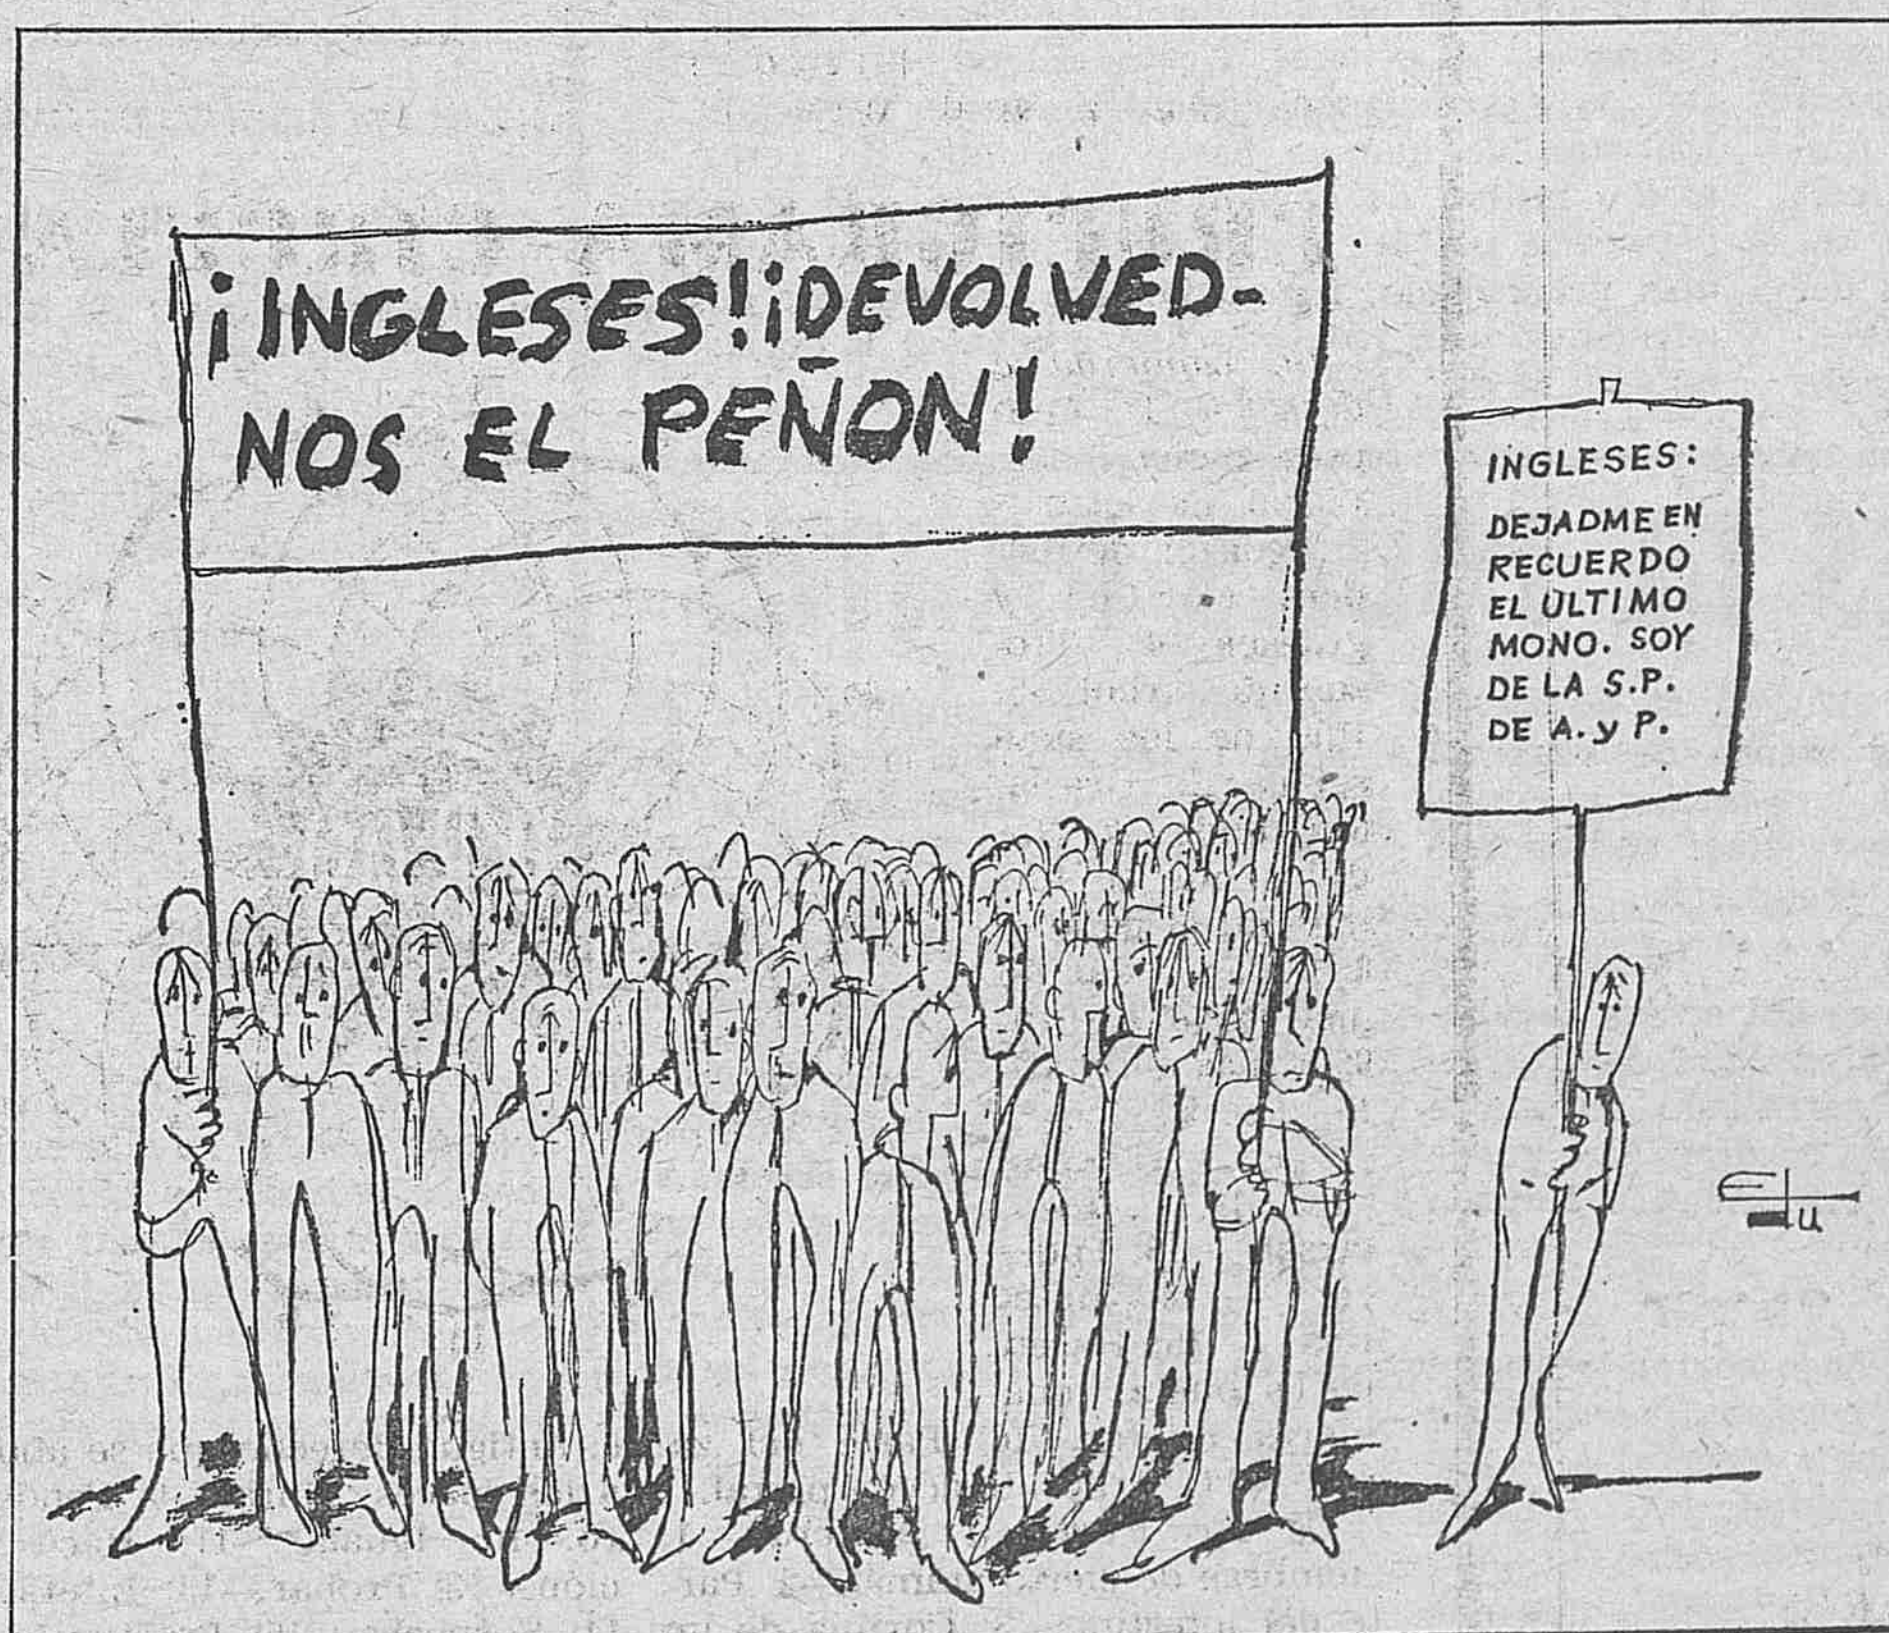 ¡INGLESES! ¡DEVOLVED-
NOS EL PEÑON!
INGLESES:
DEJADME EN
RECUERDO
EL ULTIMO
MONO. SOY
DE LA S.P.
DE A. y P.
Edu